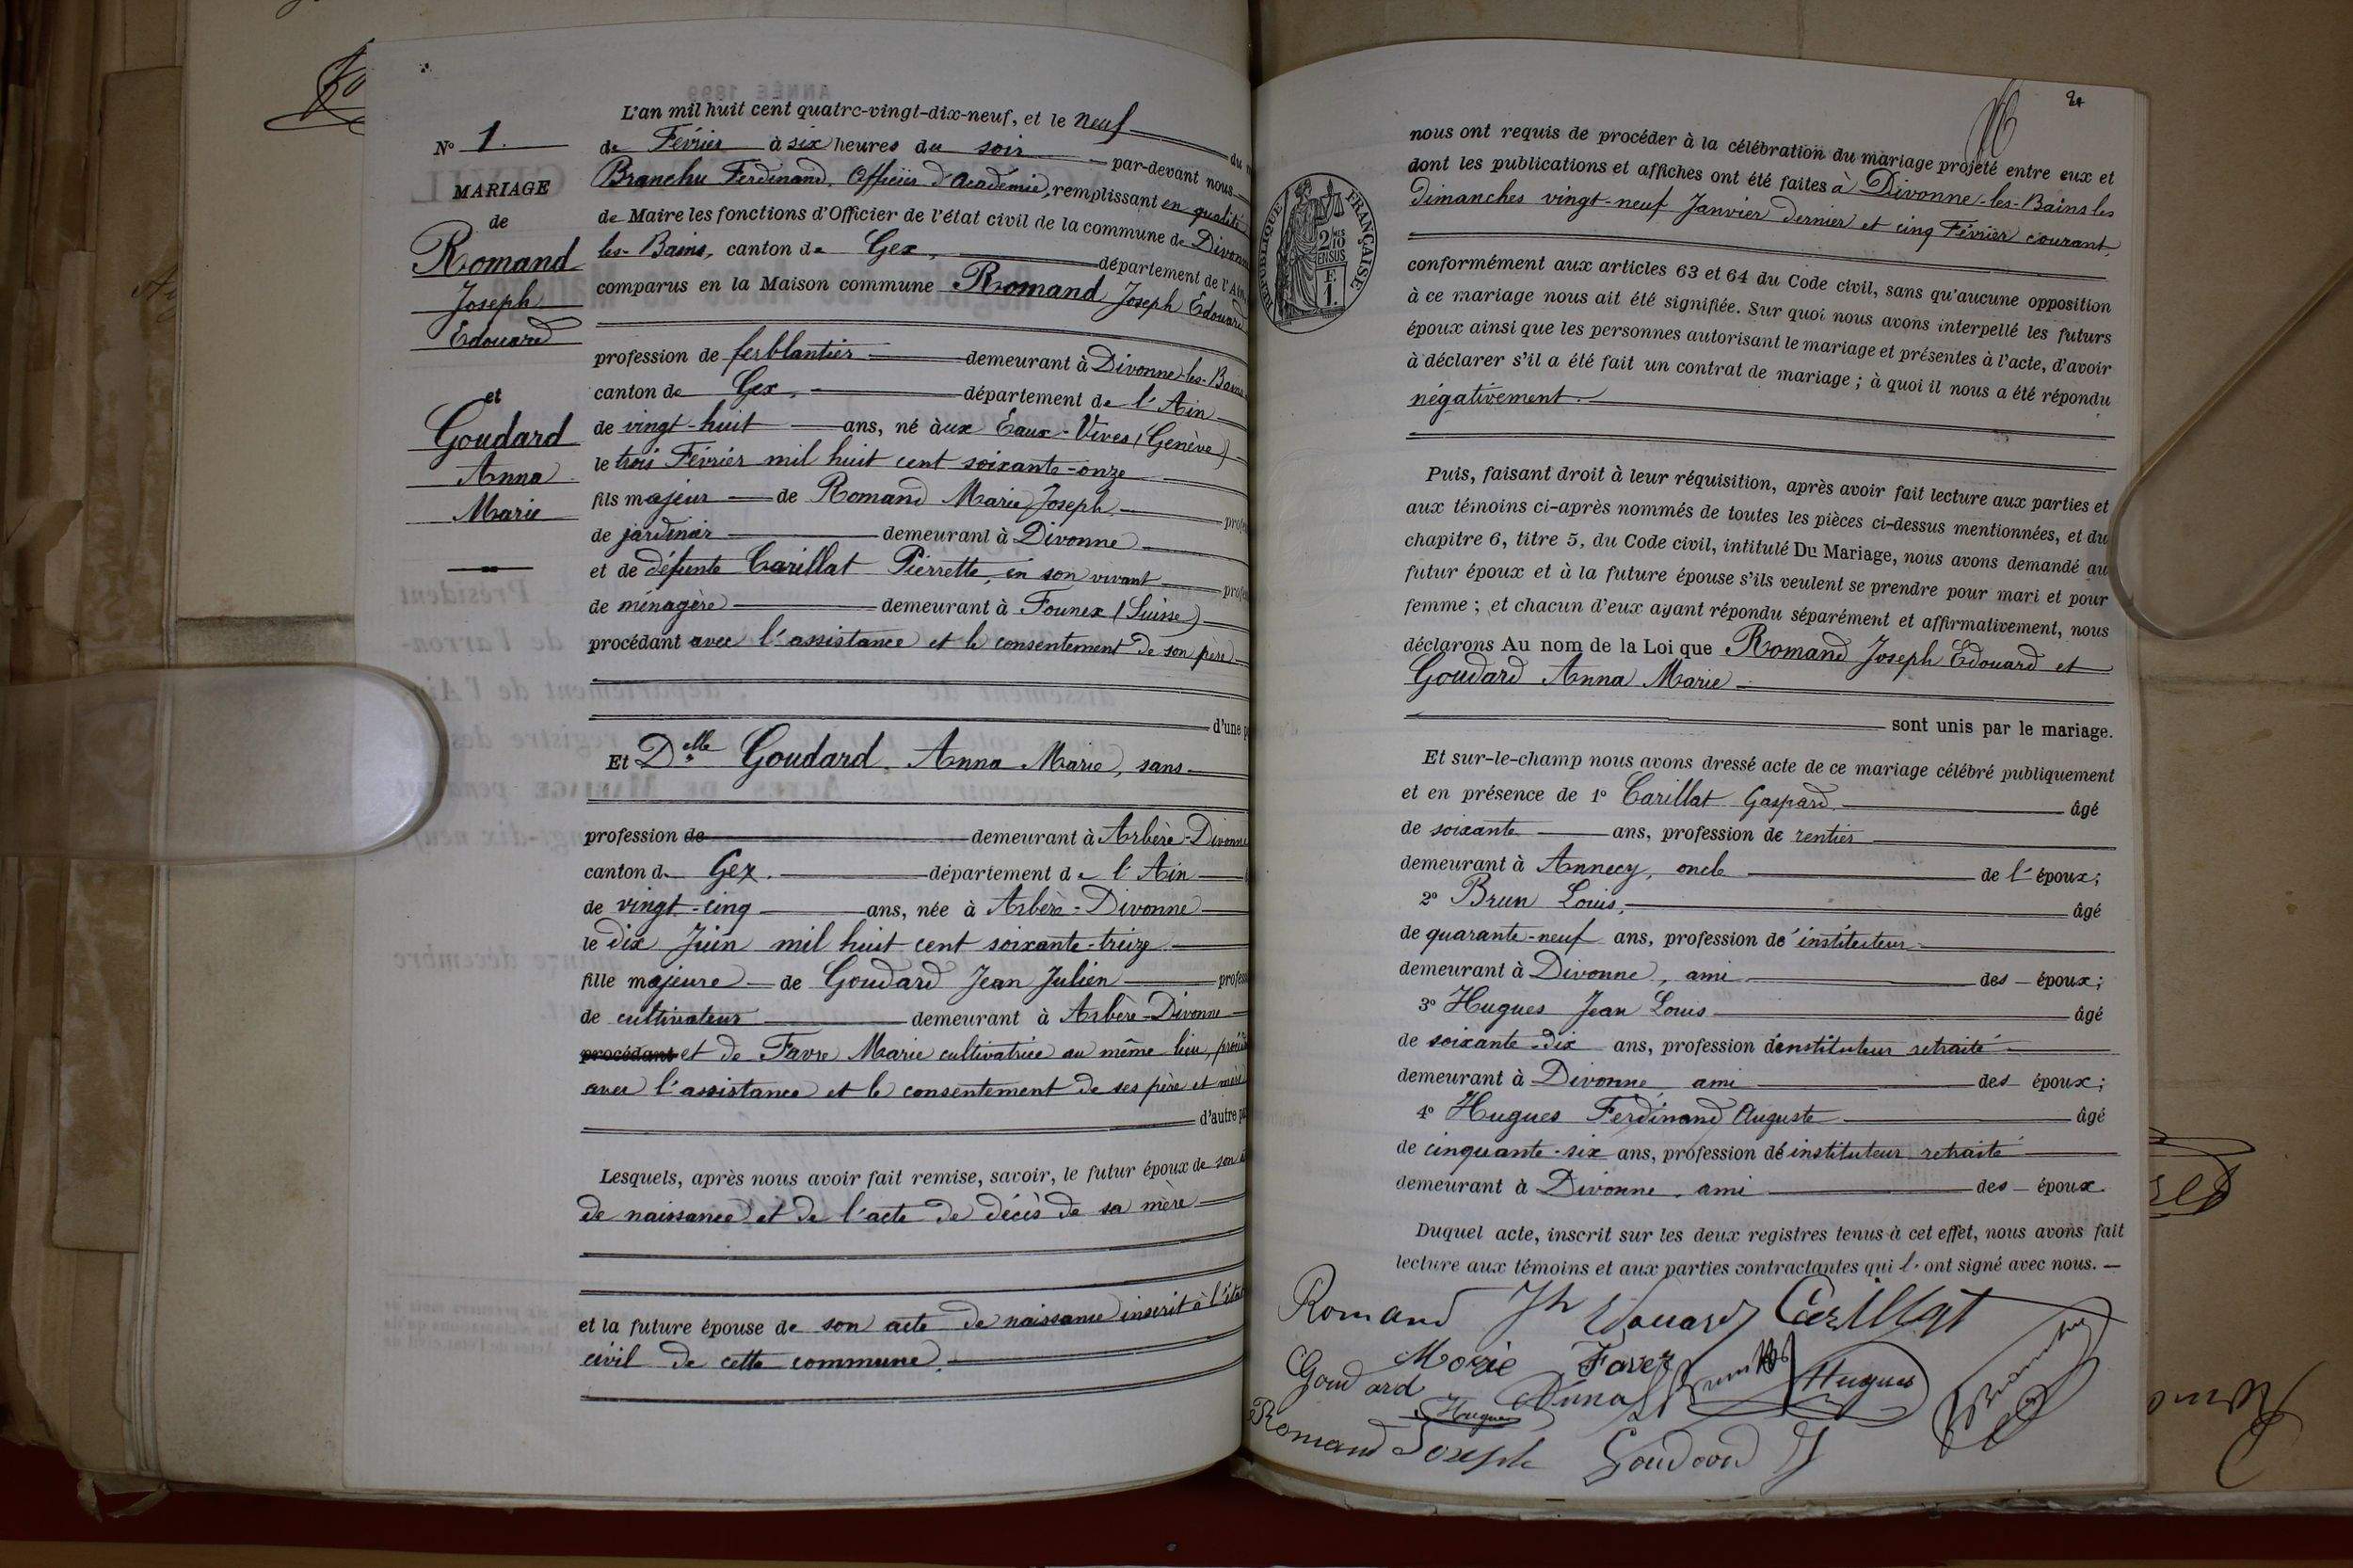 N° 1.
MARIAGE
de
Romand
Joseph
Edouard
et
Goudard
Anna
Marie
L'an mil huit cent quatre-vingt-dix-neuf, et le neuf du
de Février à six heures du soir par-devant nous
Branchu Ferdinand, Officier d'Académie, remplissant en qualité
de Maire les fonctions d'Officier de l'état civil de la commune de Divonne
les-Bains, canton de Gex, département de l'Ain
comparus en la Maison commune Romand Joseph Edouard
profession de ferblantier demeurant à Divonne-les-Bains
canton de Gex, département de l'Ain
de vingt-huit ans, né àux Eaux-Vives (Genève)
le trois Février mil huit cent soixante-onze
fils majeur de Romand Marie Joseph
de jardinier demeurant à Divonne
et de défunte Carillat Pierrette, en son vivant
de ménagère demeurant à Founex (Suisse)
procédant avec l'assistance et le consentement de son père
d'une
Et Delle Goudard Anna Marie, sans
profession de demeurant à Arbère-Divonne
canton de Gex. département de l'Ain
de vingt-cinq ans, née à Arbère-Divonne
le dix Juin mil huit cent soixante-treize
fille majeure de Goudard Jean Julien
de cultivateur demeurant à Arbère-Divonne
procédant et de Favre Marie cultivatrice au même lieu,
avec l'assistance et le consentement de ses père et mère
d'autre
Lesquels, après nous avoir fait remise, savoir, le futur époux de son
de naissance et de l'acte de décès de sa mère
et la future épouse de son acte de naissance inscrit à l'état
civil de cette commune.
nous ont requis de procéder à la célébration du mariage projeté entre eux et
dont les publications et affiches ont été faites à Divonne-les-Bains les
dimanches vingt-neuf Janvier dernier et cinq Février courant,
RÉPUBLIQUE FRANÇAISE
2/10
EN SUS
F.
1.
conformément aux articles 63 et 64 du Code civil, sans qu'aucune opposition
à ce mariage nous ait été signifiée. Sur quoi nous avons interpellé les futurs
époux ainsi que les personnes autorisant le mariage et présentes à l'acte, d'avoir
à déclarer s'il a été fait un contrat de mariage ; à quoi il nous a été répondu
négativement.
Puis, faisant droit à leur réquisition, après avoir fait lecture aux parties et
aux témoins ci-après nommés de toutes les pièces ci-dessus mentionnées, et du
chapitre 6, titre 5, du Code civil, intitulé Du Mariage, nous avons demandé au
futur époux et à la future épouse s'ils veulent se prendre pour mari et pour
femme ; et chacun d'eux ayant répondu séparément et affirmativement, nous
déclarons Au nom de la Loi que Romand Joseph Edouard et
Goudard Anna Marie
sont unis par le mariage.
Et sur-le-champ nous avons dressé acte de ce mariage célébré publiquement
et en présence de 1° Carillat Gaspard. âgé
de soixante ans, profession de rentier
demeurant à Annecy, oncle de l'époux;
2° Brun Louis, âgé
de quarante-neuf ans, profession d'instituteur
demeurant à Divonne, ami des époux;
3° Hugues Jean Louis âgé
de soixante-dix ans, profession d'instituteur retraité
demeurant à Divonne, ami des époux;
4° Hugues Ferdinand Auguste âgé
de cinquante-six ans, profession d'instituteur retraité
demeurant à Divonne, ami des époux
Duquel acte, inscrit sur les deux registres tenus à cet effet, nous avons fait
lecture aux témoins et aux parties contractantes qui l'ont signé avec nous.
Romand Jh Edouard Carillat
Marie Favre
Goudard Anna Brun Hugues
Hugues
Romand Joseph Goudard J